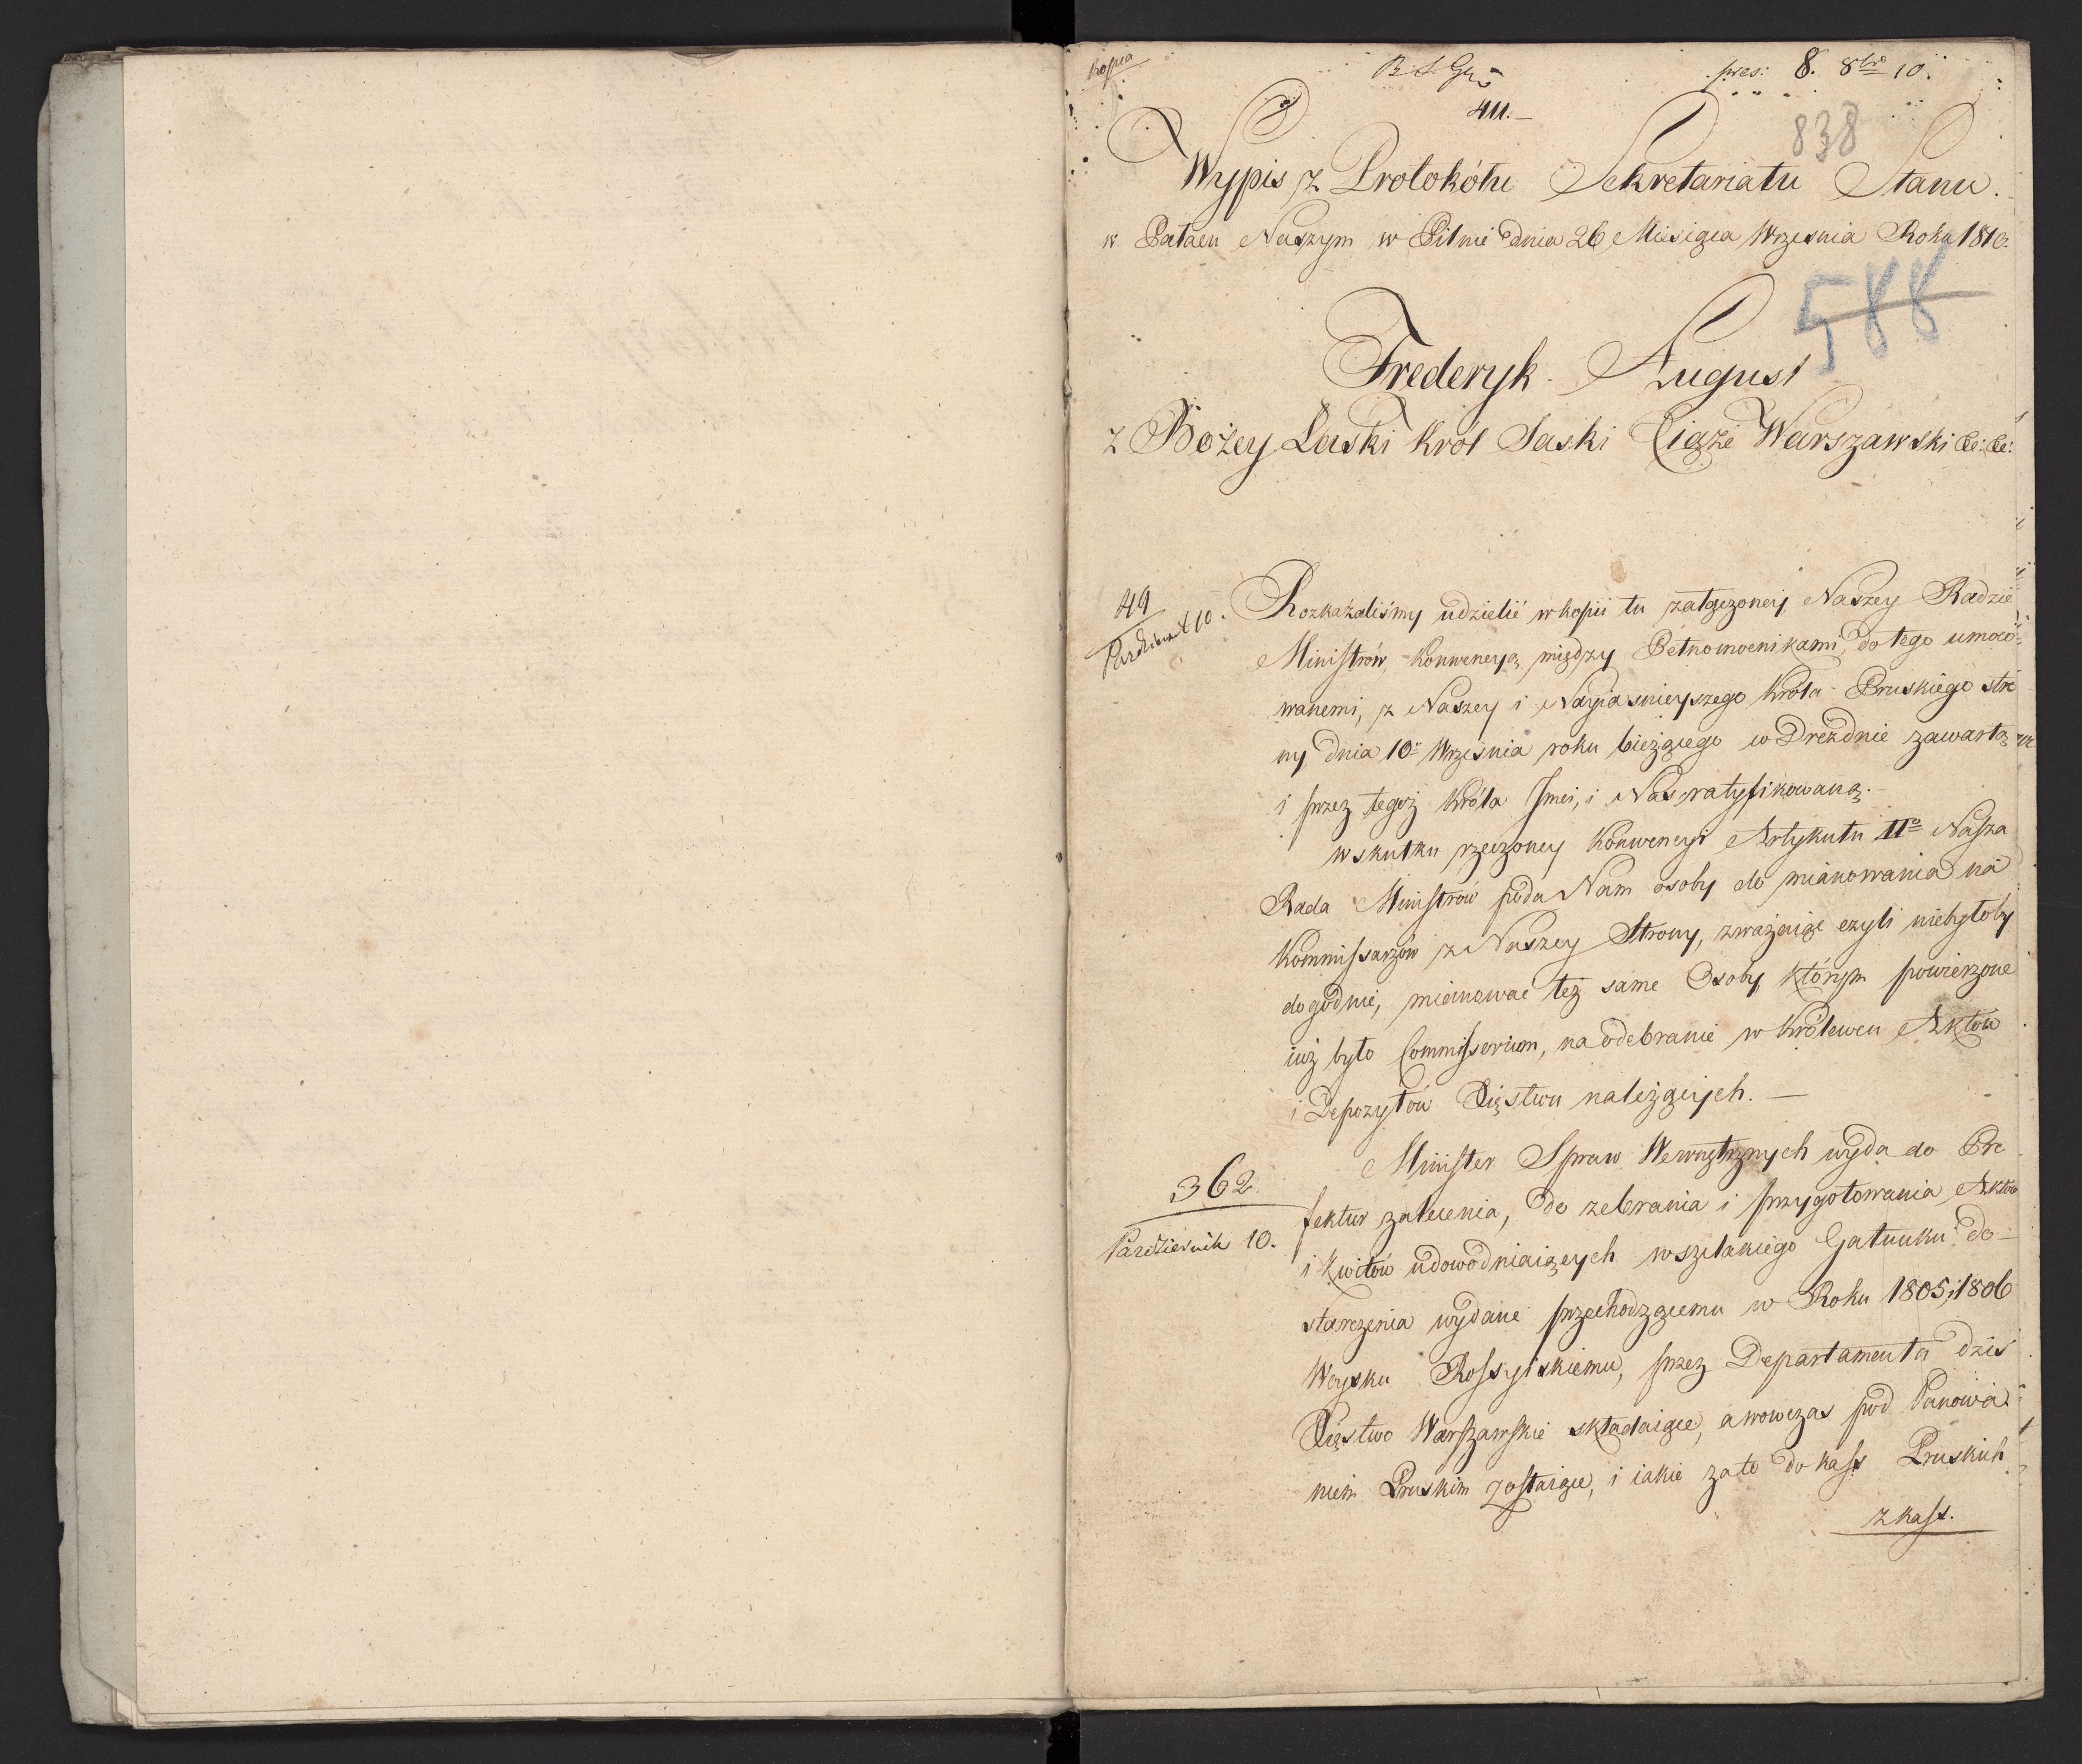 Kopia
pres: 8. 8bro 10.
411.—
838
Wypis z Protokółu Sekretariatu Stanu.
w Pałacu Naszym w Pilnie dnia 26 Miesiąca Wrzesnia Roku 1810.
588
Frederyk August
z Bożey Łaski Król Saski Xiąże Warszawski &c: &c:
49
Pazdziernik 10.
Rozkazaliśmy udzielić w kopii tu załączoney Naszey Radzie
Ministrów, Konwencyą między Pełnomocnikami, do tego umoco-
wanemi, z Naszey i Nayiasnieyszego Króla Pruskiego stro
ny dnia 10o Września roku bieżącego w Dreźdnie zawartą
i przez tegoż Króla Jmci, i Nas ratyfikowaną.
w skutku rzeczoney Konwencyi Artykułu IIo Nasza
Rada Ministrów poda Nam osoby do mianowania na
Kommissarzów z Naszey Strony, zważaiąc czyli niebyłoby
dogodnie, mianować też same Osoby którym powierzone
iuż było Commisorium, na odebranie w Królewcu Aktów
i Depozytów Xięstwu należących. —
362
Pazdziernik 10.
Minister Spraw Wewnętrznych wyda do Pre
fektur zalecenia, do zebrania i przygotowania Aktów
i Kwitów udowodniaiących wszelakiego Gatunku do-
starczenia wydane przechodzącemu w Roku 1805, i 1806
Woysku Rossyiskiemu, przez Departamenta dzis
Xięstwo Warszawskie składaiące, a wowczas pod Panowa-
niem Pruskim zostaiące, i iakie za to do kass Pruskich
z kass.